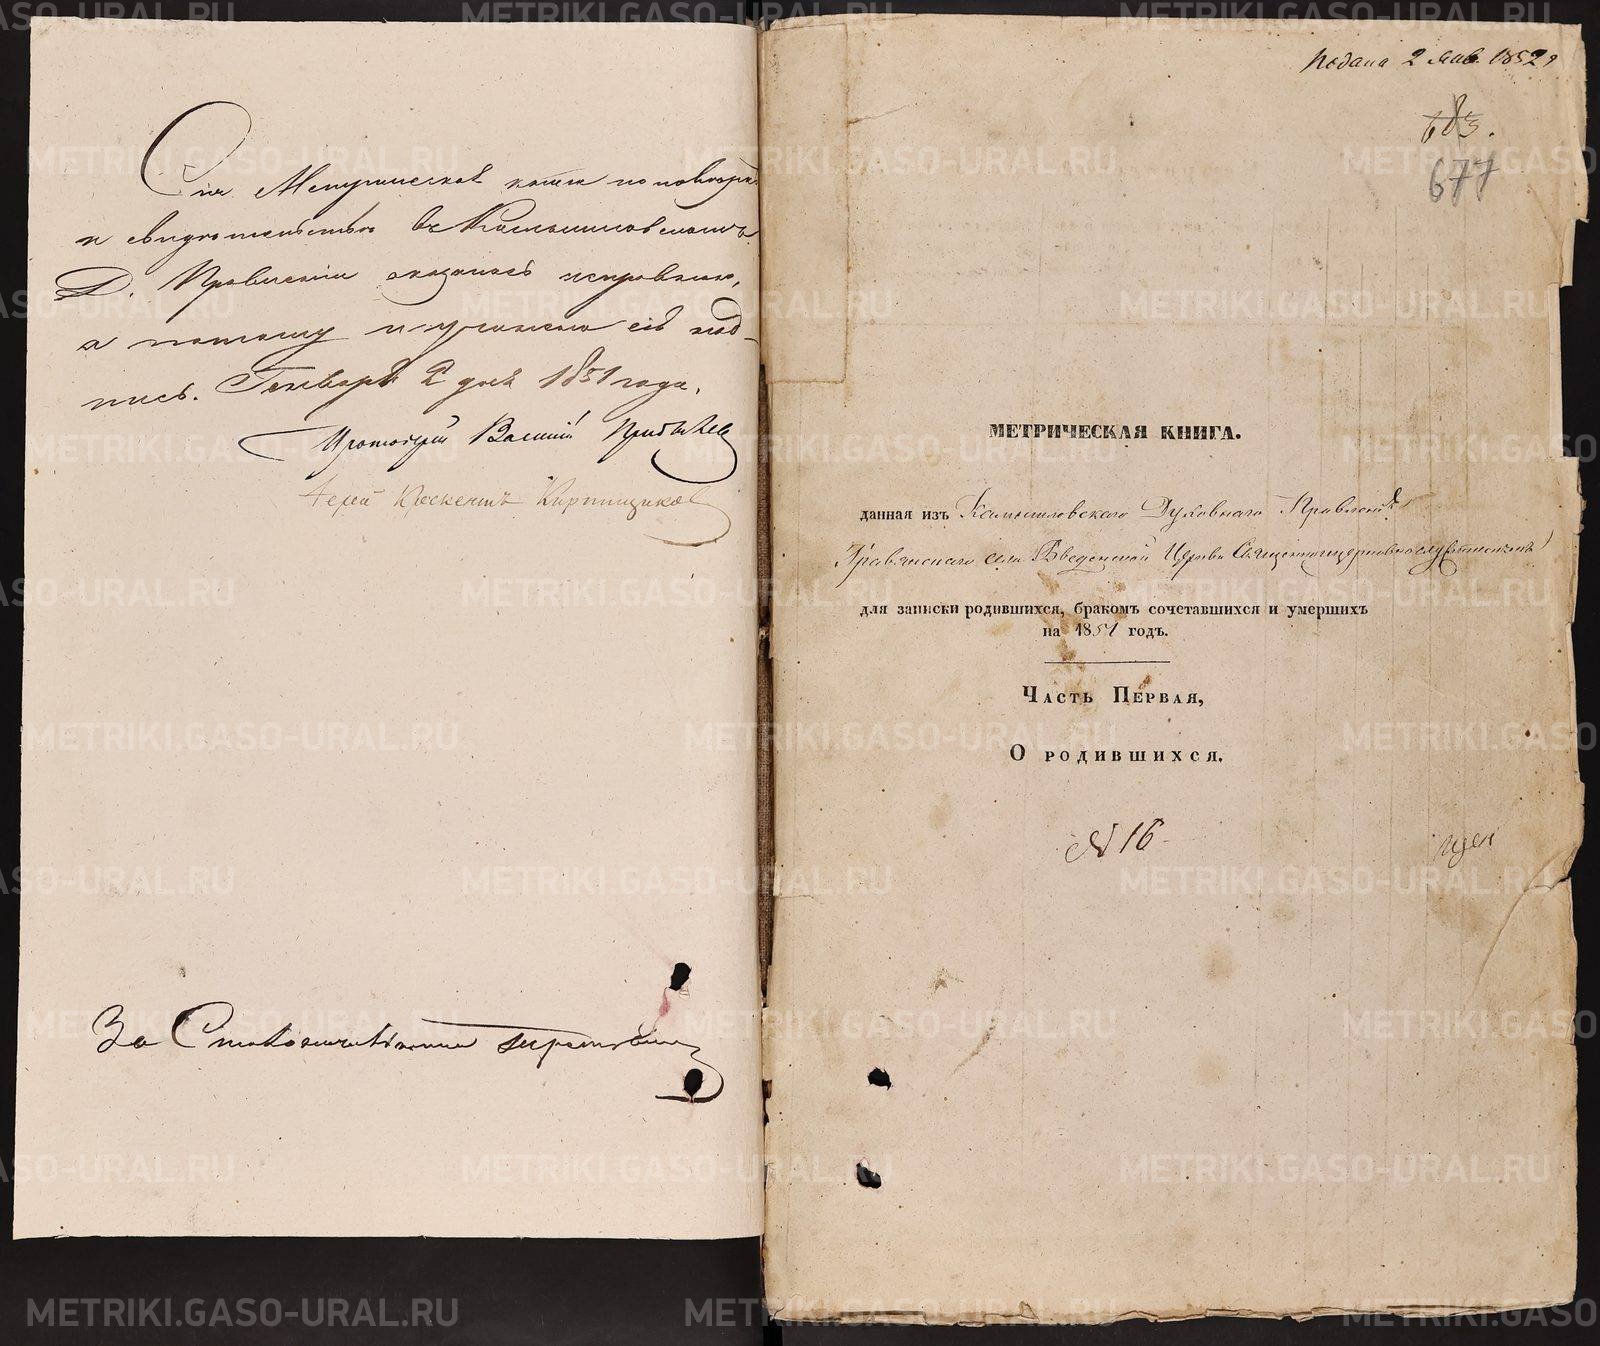 Сія Метрическая книга по поверк
и свидѣтельствѣ въ Камышловскомъ
Д. Правленіи оказалась исправною,
а потому и учинена сія под-
пись. Генваря 2 дня 1851 года.
Протоіерей Василій
Іерей Кирпищиковъ
За
Подана 2 янв. 1852 г
683.
677
МЕТРИЧЕСКАЯ КНИГА.
данная изъ Камышловскаго Духовнаго Правленія
села Введенской Церкви Священноцерковнослужителямъ
для записки родившихся, бракомъ сочетавшихся и умершихъ
на 1851 годъ.
Часть Первая,
О родившихся.
№ 16
METRIKI.GASO-URAL.RU